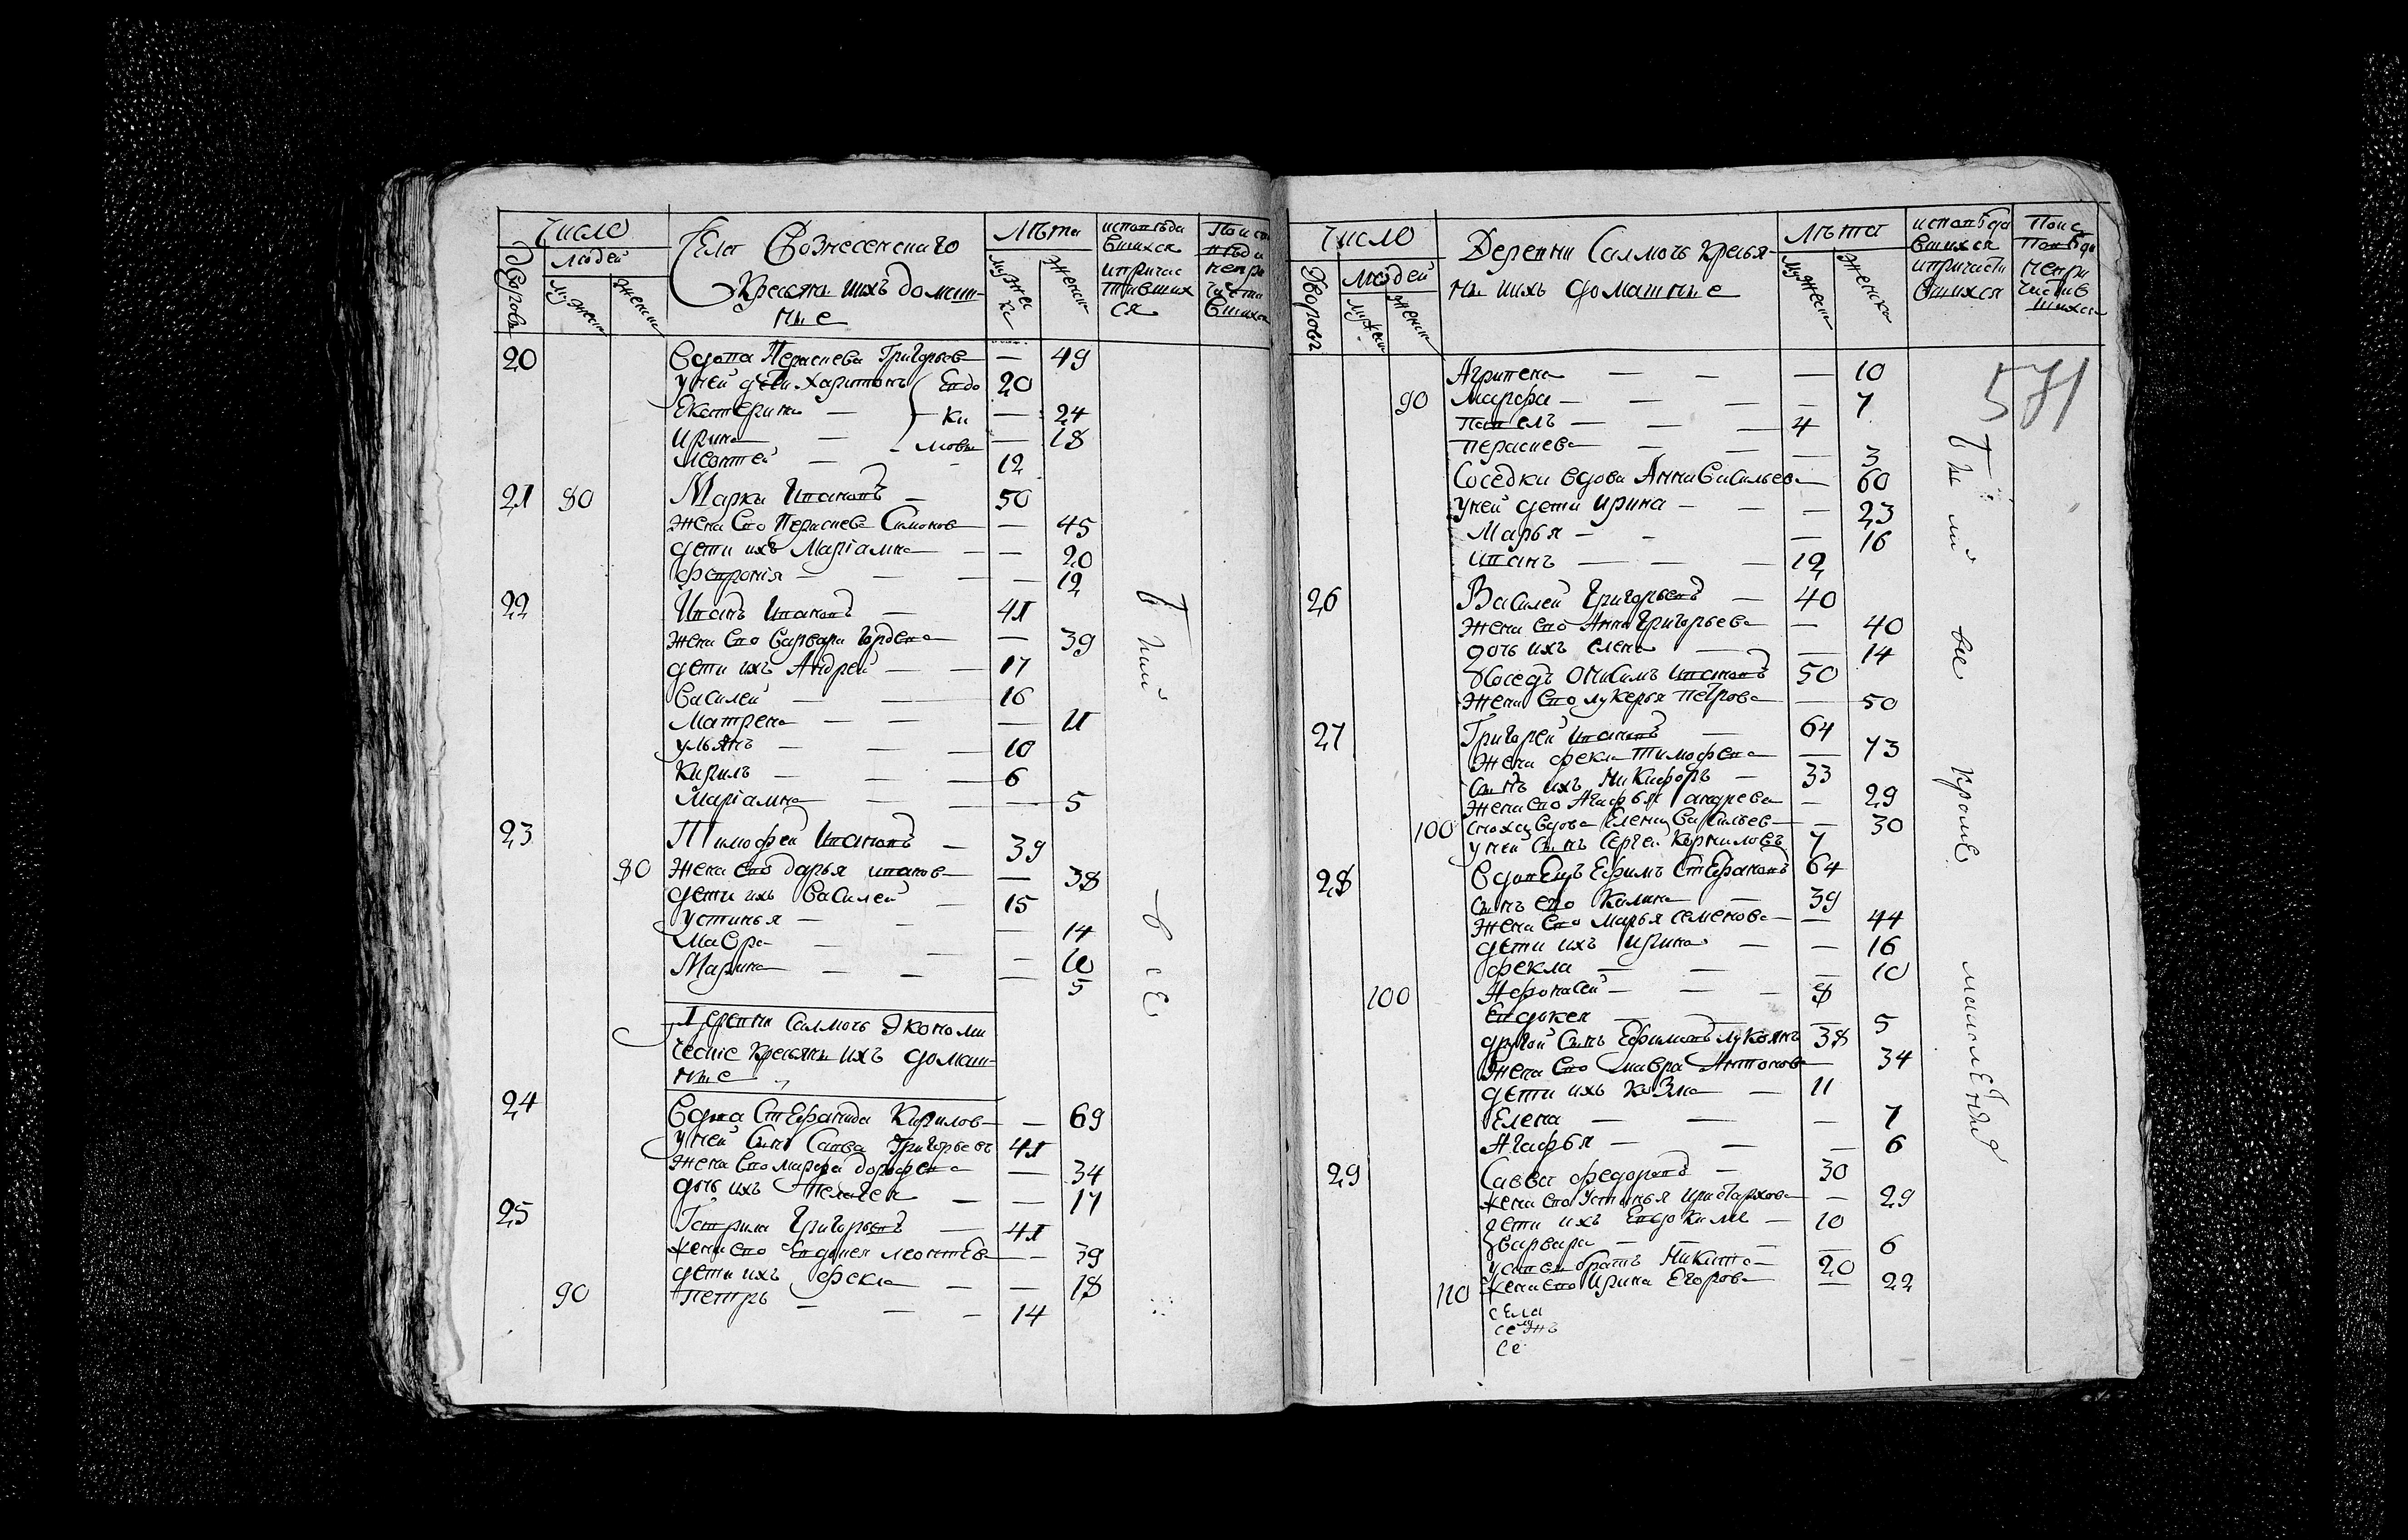 Число
людей
Дворовъ
мужеск
женск
Села Вознесенскаго
Крестьяне ихъ домаш-
ние
Лѣта
мужес
ка
женск
исповѣда
вшихся
ипричас
тивших
ся
20 Вдова Параскева Григорьева — 49
у ней дети Харитонъ Евдо 20
Екатерина — ки — 24
Ирина — мовы — 18
Леонтей — 12
21 80 Марка Иванов — 50
жена ево Параскева Симонов — 45
дети ихъ Мариамна — 20
Феврония — 12
22 Иванъ Иванов — 41
жена ево Варвара Гордеева — 39
дети ихъ Андрей — 17
Василей — 16
Матрена — 11
Ульянъ — 10
Кирилъ — 6
Мариамна — 5
23 Тимофей Иванов — 39
80 жена ево дарья иванов — 38
дети ихъ Василей — 15
Устинья — 14
Мавра — 10
Марина — 5
Деревни Салмочь Экономи
ческие крестьяне ихъ домаш-
ние
24 Вдова Стефанида Кирилов — 69
у ней сынъ Савва Григорьевъ 41
жена ево марфа дорофеева — 34
дочь ихъ Пелагея — 17
25 Гаврила Григорьевъ — 41
жена ево Евдокея леонтева — 39
дети ихъ Фекла — 18
90 Петръ — 14
вси
всЕ
Число
людей
Дворовъ
мужеск
женск
Деревни Салмочь крестья-
не ихъ домашние
Лѣта
мужеск
женска
исповѣда
вшихся
ипричасти
вшихся
Поис
повѣда
непри
частив
шихся
571
Агрипена — 10
90 Марфа — 7
Павелъ — 4
Параскева — 3
Соседка вдова Анна Васильева — 60
у ней дети Ирина — 23
Марья — 16
иванъ — 12
26 Василей Григорьевъ — 40
жена ево Анна Григорьева — 40
дочь ихъ елена — 14
Соседъ Онисимъ Ивановъ 50
жена ево лукерья петрова — 50
27 Григорей Иванов — 64
жена фекла Тимофеева — 73
Сынъ ихъ Никифоръ — 33
жена ево Агафья андреева — 29
100 сноха вдова Елена Васильев — 30
у ней Сынъ Сергеи Корниловъ 7
28 Вдовецъ Ефимъ Стефановъ 64
сынъ ево Калина — 39
жена ево Марья семенова — 44
дети ихъ Ирина — 16
Фекла — 10
100 Афонасей — 8
Евдокея — 5
другой Сынъ Ефимовъ лукоянъ 38
жена ево мавра Антонова — 34
дети ихъ Козма — 11
Елена — 7
Агафья — 6
29 Савва федоровъ — 30
жена ево Устинья Аристархова — 29
дети ихъ Евдокимъ — 10
варвара — 6
у саввы братъ Никита — 20
110 жена ево Ирина Егорова — 22
села
се
все кромЕ